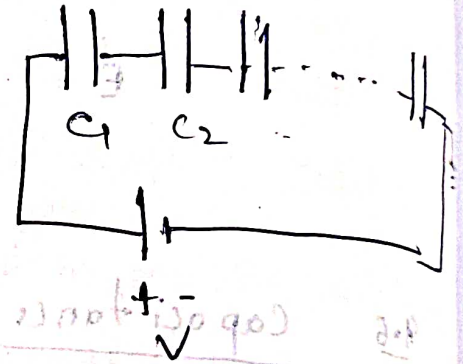 C₁ C₂ ..
+ -
V